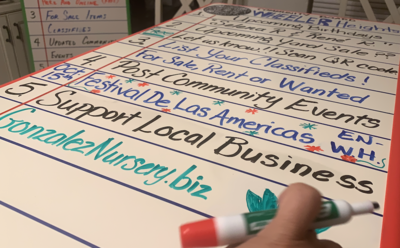 3 For Sale Items
Classifieds
4 Updated Community
Events
Wheeler Heights
3 List Your Classifieds!
For Sale Rent or Wanted
4 Post Community Events
Oct 15th Festival De Las Americas EN-W.H.s
5 Support Local Business
GonzalezNursery.biz